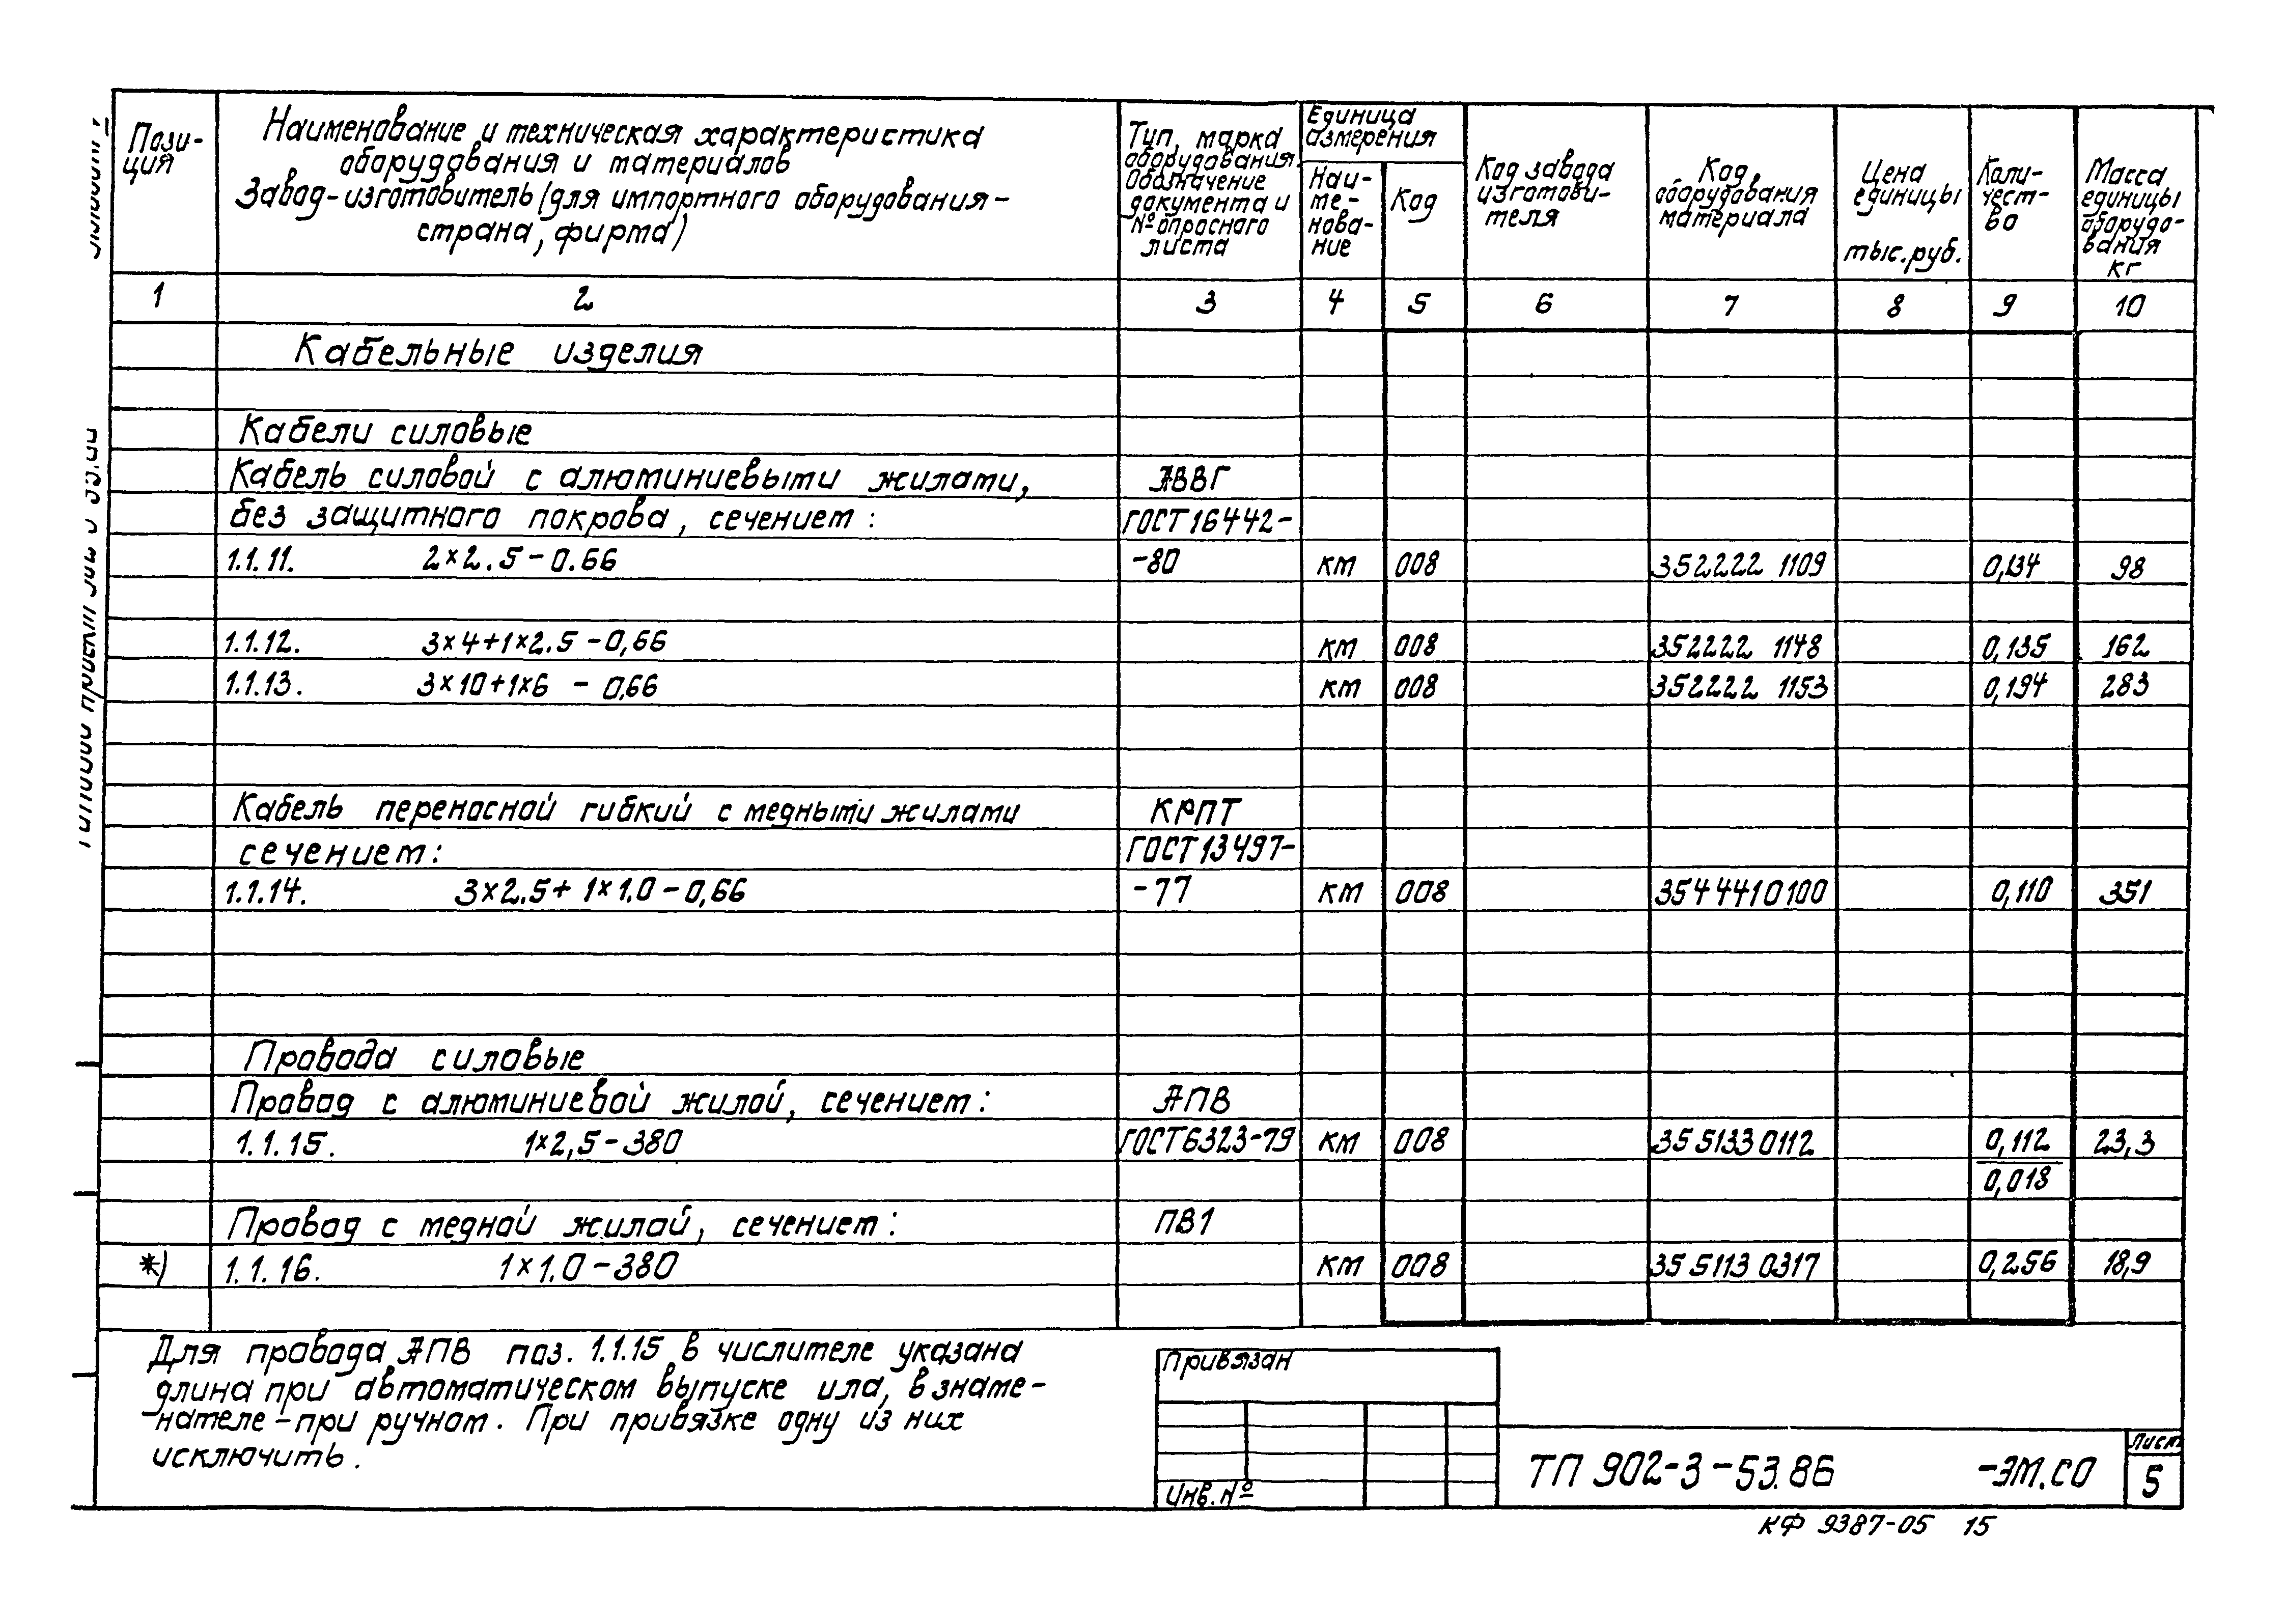 Пози-
ция
Наименование и техническая характеристика
оборудования и материалов
Завод-изготовитель (для импортного оборудования-
страна, фирма)
Тип, марка
оборудования.
Обозначение
документа и
№ опросного
листа
Единица
измерения
Наи-
ме-
нова-
ние
Код
Код завода
изготови-
теля
Код
оборудования
материала
Цена
единицы
тыс.руб.
Коли-
чест-
во
Масса
единицы
оборудо-
вания
кг
1 2 3 4 5 6 7 8 9 10
Кабельные изделия
Кабели силовые
Кабель силовой с алюминиевыми жилами, АВВГ
без защитного покрова, сечением: ГОСТ16442-
1.1.11. 2×2.5-0.66 -80 км 008 352222 1109 0,134 98
1.1.12. 3×4+1×2.5-0,66 км 008 352222 1148 0,135 162
1.1.13. 3×10+1×6 - 0,66 км 008 352222 1153 0,194 283
Кабель переносной гибкий с медными жилами КРПТ
сечением: ГОСТ13497-
1.1.14. 3×2.5+1×1.0-0,66 -77 км 008 3544410100 0,110 351
Провода силовые
Провод с алюминиевой жилой, сечением: АПВ
1.1.15. 1×2,5-380 ГОСТ6323-79 км 008 3551330112 0,112 23,3
0,018
Провод с медной жилой, сечением: ПВ1
*) 1.1.16. 1×1.0-380 км 008 355113 0317 0,256 18,9
Для провода АПВ поз. 1.1.15 в числителе указана
длина при автоматическом выпуске ила, в знаме-
нателе-при ручном. При привязке одну из них
исключить.
Привязан
Инв.№
ТП 902-3-53.86 -ЭМ.СО
Лист
5
КФ 9387-05 15